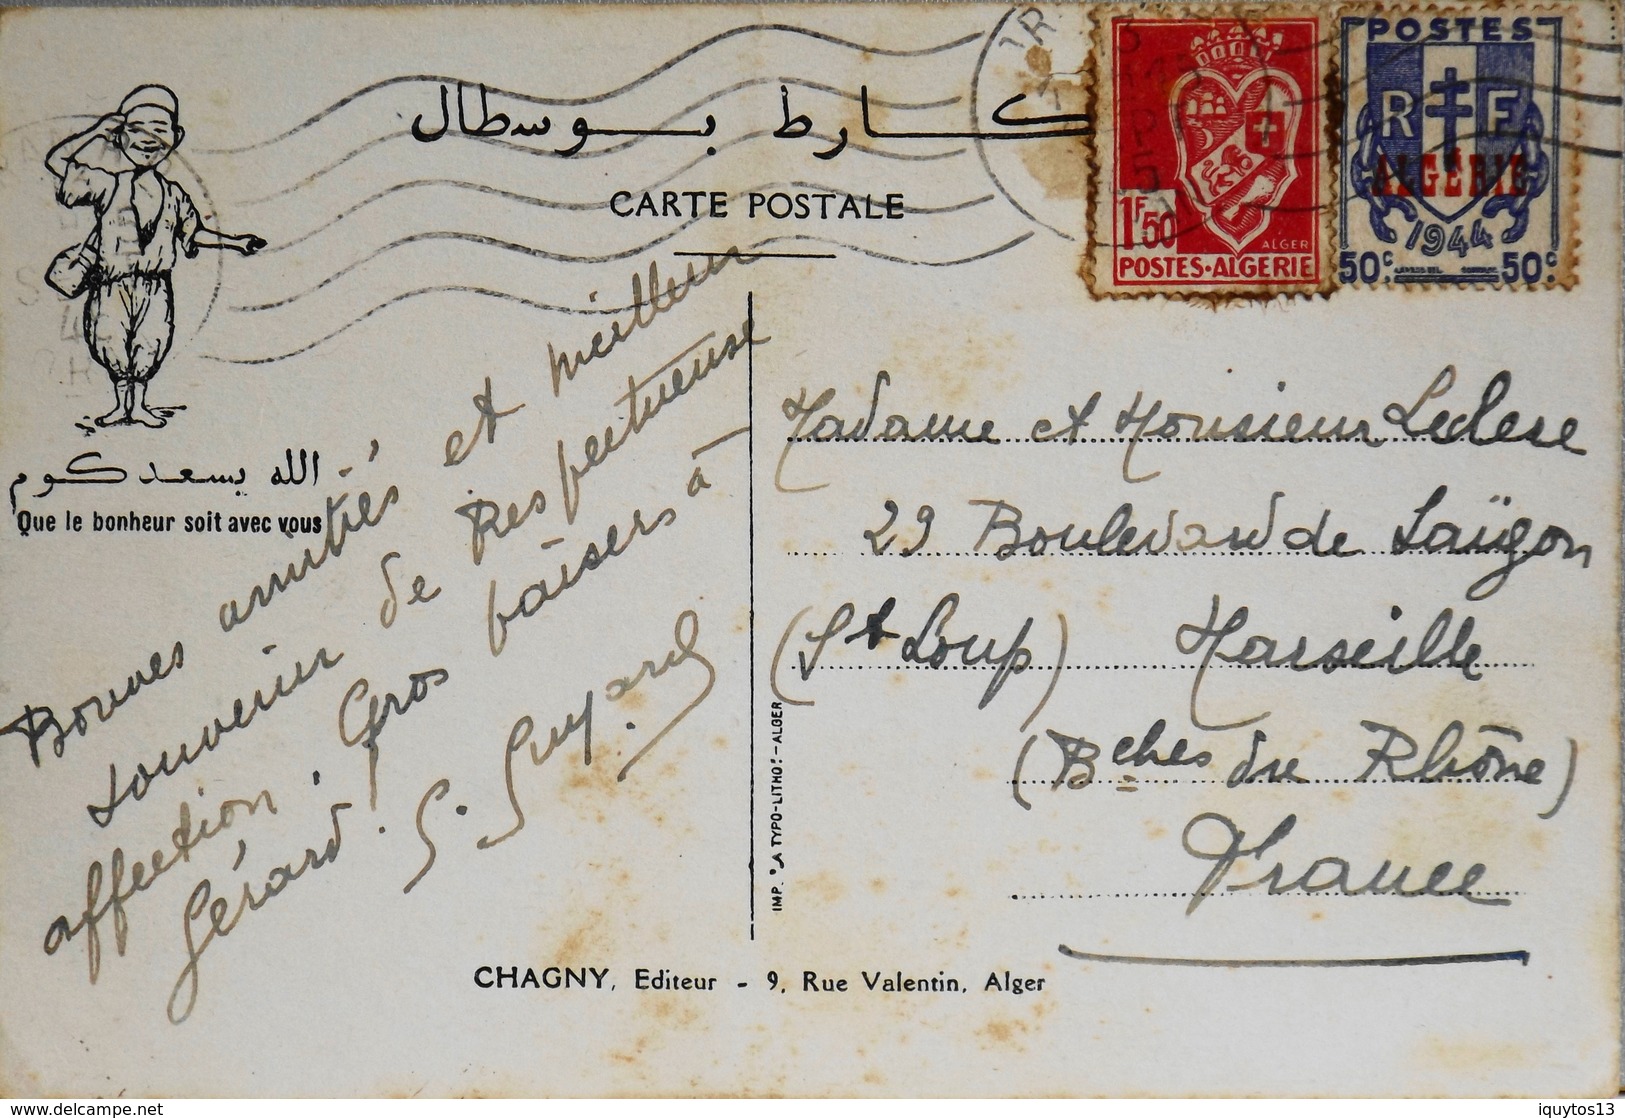 كارط بوسطال
CARTE POSTALE
1F50
ALGER
POSTES-ALGERIE
POSTES
R F
ALGÉRIE
1944
50c 50c
الله يسعدكوم
Que le bonheur soit avec vous
Bonnes amitiés et meilleur
souvenir de Respectueuse
affection, Gros baisers à
Gérard. G. Guyard
Madame et Monsieur Leclerc
29 Boulevard de Saïgon
(St Loup) Marseille
(Bches du Rhône)
France
IMP. "LA TYPO-LITHO"-ALGER
CHAGNY, Editeur - 9, Rue Valentin, Alger
iquytos13